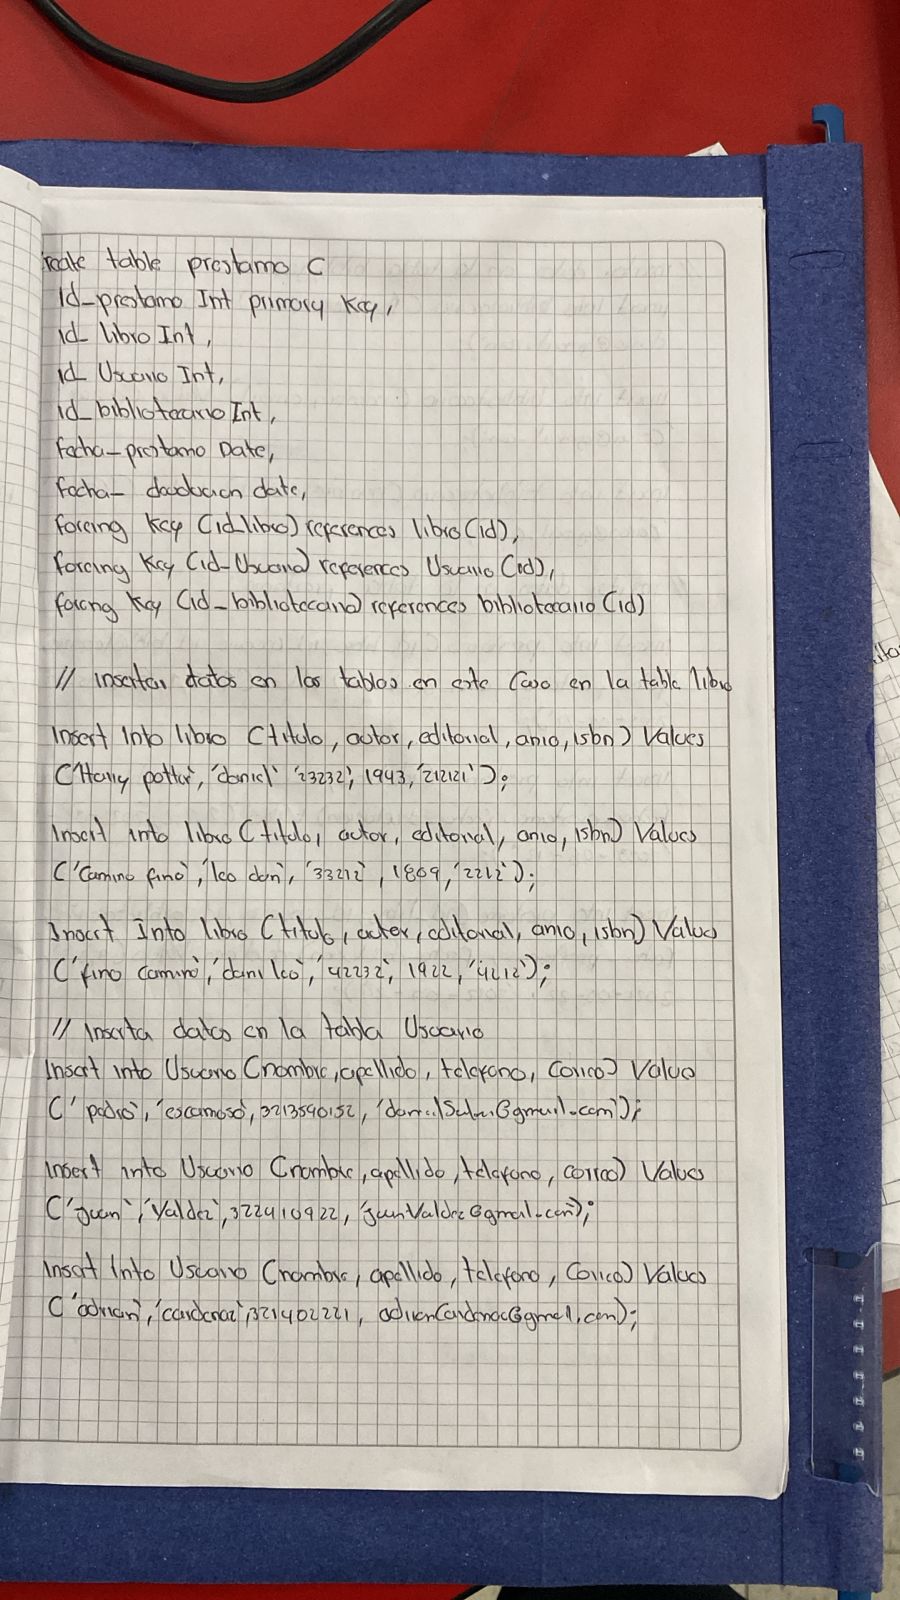 reate table prestamo (
Id_prestamo Int primary Key,
id_libro Int,
id_Usuario Int,
id_bibliotecario Int,
fecha_prestamo Date,
fecha_ devolucion date,
foreing Key (id_libro) references libro (id),
foreing Key (id_Usuario) references Usuario (id),
foreing Key (id_bibliotecario) references bibliotecario (id)
// insertar datos en las tablas en este Caso en la table libro
Insert Into libro (titulo, autor, editorial, anio, isbn) Values
('Harry potter', 'daniel' '23232', 1943, '212121');
Insert into libro (titulo, autor, editorial, anio, isbn) Values
('Camino fino', 'leo dan', '33212', 1809, '2212');
Insert Into libro (titulo, autor, editorial, anio, isbn) Values
('fino camino', 'dani leo', '42232', 1922, '4212');
// Inserta datos en la tabla Usuario
Insert into Usuario (nombre, apellido, telefono, correo) Values
('pedro', 'escamoso', 3213590152, gmail.com');
Insert into Usuario (nombre, apellido, telefono, correo) Values
('juan', 'Valdez', 322410922, 'juanValdez@gmail.com');
Insert Into Usuario (nombre, apellido, telefono, correo) Values
('adrian', 'cardenaz', 321402221, adrianCardenac@gmail.com);